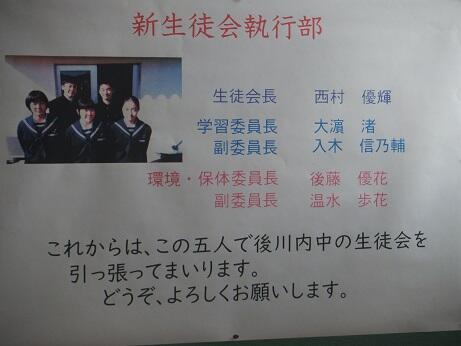 新生徒会執行部
生徒会長 西村 優輝
学習委員長 大濵 渚
副委員長 入木 信乃輔
環境・保体委員長 後藤 優花
副委員長 温水 歩花
これからは、この五人で後川内中の生徒会を
引っ張ってまいります。
どうぞ、よろしくお願いします。